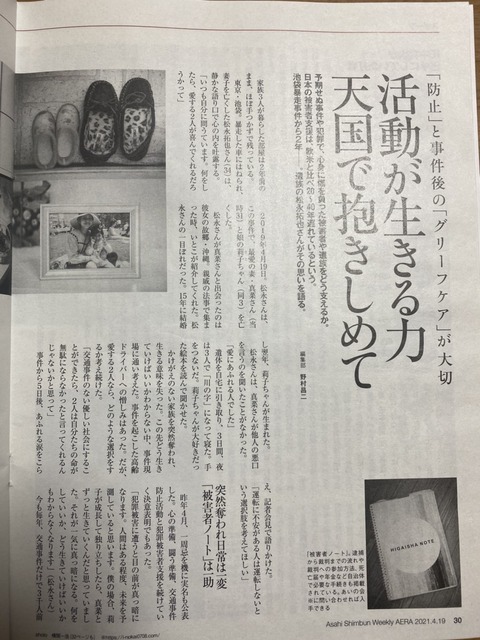 「防止」と事件後の「グリーフケア」が大切
活動が生きる力
天国で抱きしめて
予期せぬ事件や犯罪で、心身に傷を負った被害者や遺族をどう支えるか。
日本の被害者支援は、欧米と比べ20〜40年遅れているという。
池袋暴走事件から2年——。遺族の松永拓也さんがその思いを語る。
編集部 野村昌二
家族3人が暮らした部屋は2年前の
まま、ほぼ手つかずで残っている。
東京・池袋。暴走した車にはねられ、
妻子を亡くした松永拓也さん(34)は、
静かな語り口で心の内を吐露する。
「いつも自分に問うています。何をし
たら、愛する2人が喜んでくれるだろ
うかって」
2019年4月19日、松永さんは、
この事件で最愛の妻、真菜さん(当
時31)と娘の莉子ちゃん(同3)を亡
くした。
松永さんが真菜さんと出会ったのは
彼女の故郷・沖縄。親戚の法事で集ま
った時、いとこが紹介してくれた。松
永さんの一目ぼれだった。15年に結婚
し翌年、莉子ちゃんが生まれた。
松永さんは、真菜さんが他人の悪口
を言うのを聞いたことがなかった。
「愛にあふれる人でした」
遺体を自宅に引き取り、3日間、夜
は3人で「川の字」になって寝た。手
をつないだ。莉子ちゃんが大好きだっ
た絵本を読んで聞かせた。
かけがえのない家族を突然奪われ、
生きる意味を失った。この先どう生き
ていけばいいかわからない中、事件現
場に通い考えた。事件を起こした高齢
ドライバーへの憎しみはあった。だが、
愛する2人なら、どのような選択をす
るかを考え続けた。
「交通事件のない優しい社会にするこ
とができたら、2人は自分たちの命が
無駄にならなかったと言ってくれるん
じゃないかと思って」
事件から5日後、あふれる涙をこら
え、記者会見で語りかけた。
「運転に不安がある人は運転しないと
いう選択肢を考えてほしい」
突然奪われ日常は一変
「被害者ノート」は一助
昨年4月、一周忌を機に実名も公表
した。心の準備、闘う準備、交通事件
防止活動と犯罪被害者支援を続けてい
く決意表明でもあった。
「犯罪被害に遭うと目の前が真っ暗に
なります。人間はある程度、未来を予
測していると思います。僕の場合、莉
子が成長して独り立ちしたら、真菜と
ずっと生きていくんだと思っていまし
た。それが一気に真っ暗になる。何を
していいか、どう生きていけばいいか
もわからなくなります」(松永さん)
今も毎年、交通事件だけで3千人前
HIGAISHA NOTE
「被害者ノート」。逮捕
から裁判までの流れや
裁判への参加方法、死
亡届や年金など自治体
で必要な手続きも掲載
されている。あいの会
※に問い合わせれば入
手できる
Asahi Shimbun Weekly AERA 2021.4.19 30